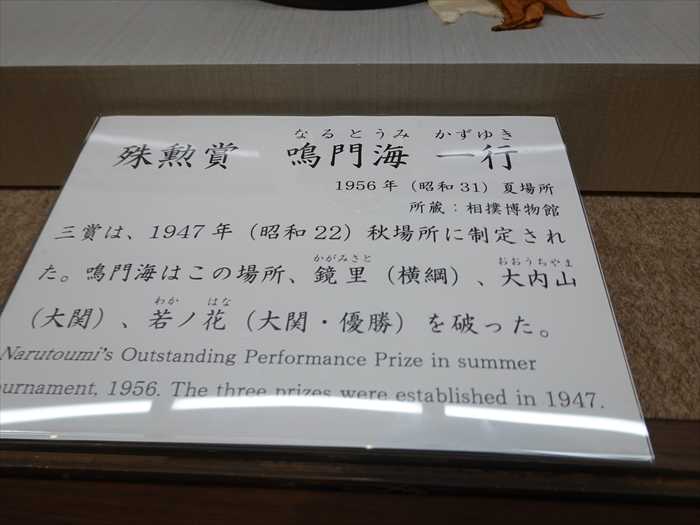 なるとうみ かずゆき
殊勲賞 鳴門海 一行
1956年（昭和31）夏場所
所蔵：相撲博物館
三賞は、1947年（昭和22）秋場所に制定され
かがみさと おおうちやま
た。鳴門海はこの場所、鏡里（横綱）、大内山
わか はな
（大関）、若ノ花（大関・優勝）を破った。
Narutoumi's Outstanding Performance Prize in summer
ournament, 1956. The three prizes were established in 1947.